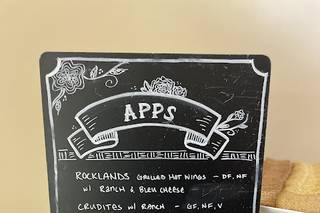 APPS
ROCKLANDS GRILLED HOT WINGS - DF, NF
W/ RANCH & BLEU CHEESE
CRUDITES W/ RANCH - GF, NF, V